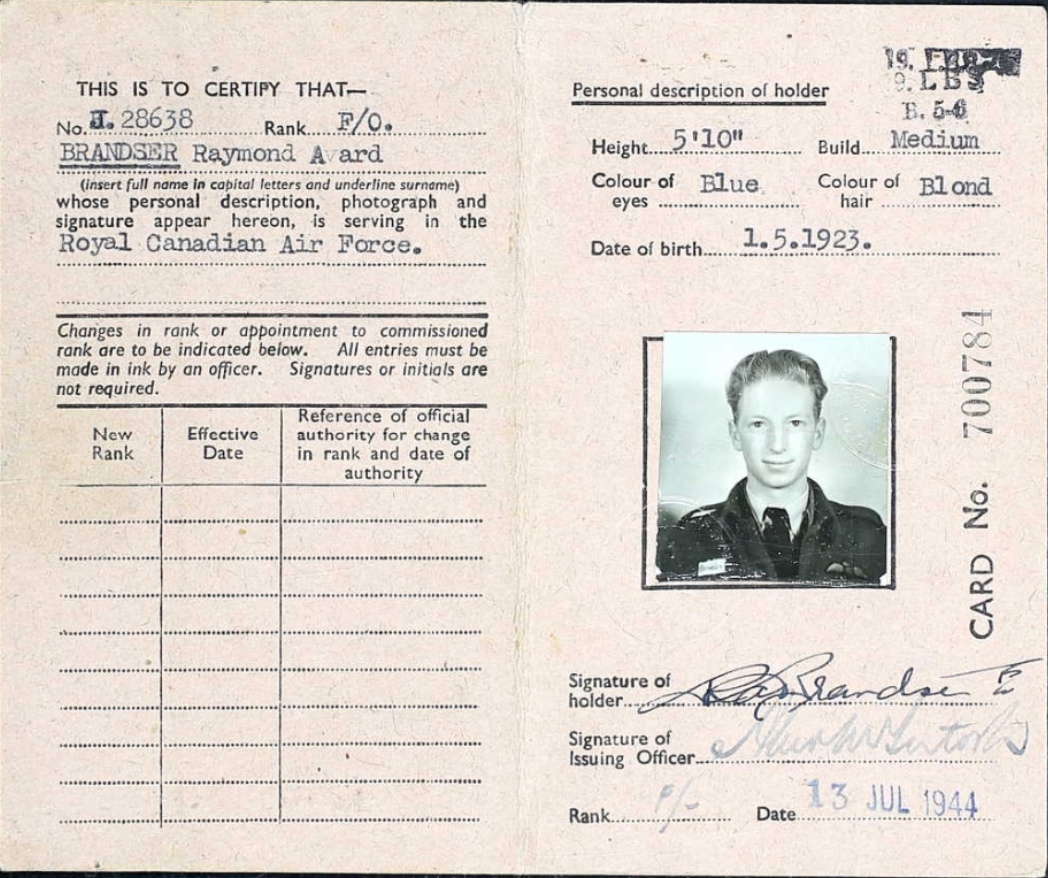 THIS IS TO CERTIFY THAT—
No. J. 28638 Rank F/O.
BRANDSER Raymond Avard
(insert full name in capital letters and underline surname)
whose personal description, photograph and
signature appear hereon, is serving in the
Royal Canadian Air Force.
Changes in rank or appointment to commissioned
rank are to be indicated below. All entries must be
made in ink by an officer. Signatures or initials are
not required.
New Rank
Effective Date
Reference of official
authority for change
in rank and date of
authority
Personal description of holder
19.
9. LBS
B. 5-6
Height 5'10" Build Medium
Colour of eyes Blue Colour of hair Blond
Date of birth 1.5.1923.
CARD No. 700784
Signature of holder Ray Brandser
Signature of Issuing Officer
Rank Date 13 JUL 1944